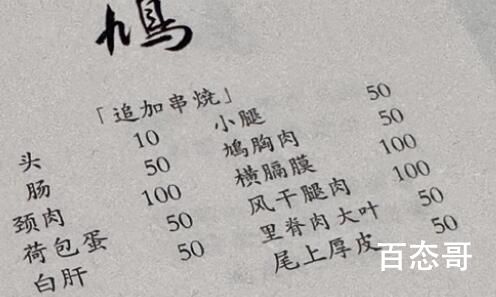 鸠
「追加串烧」
头 10
肠 50
颈肉 100
荷包蛋 50
白肝 50
小腿 50
鸠胸肉 50
横膈膜 100
风干腿肉 100
里脊肉大叶 50
尾上厚皮 50
百态哥